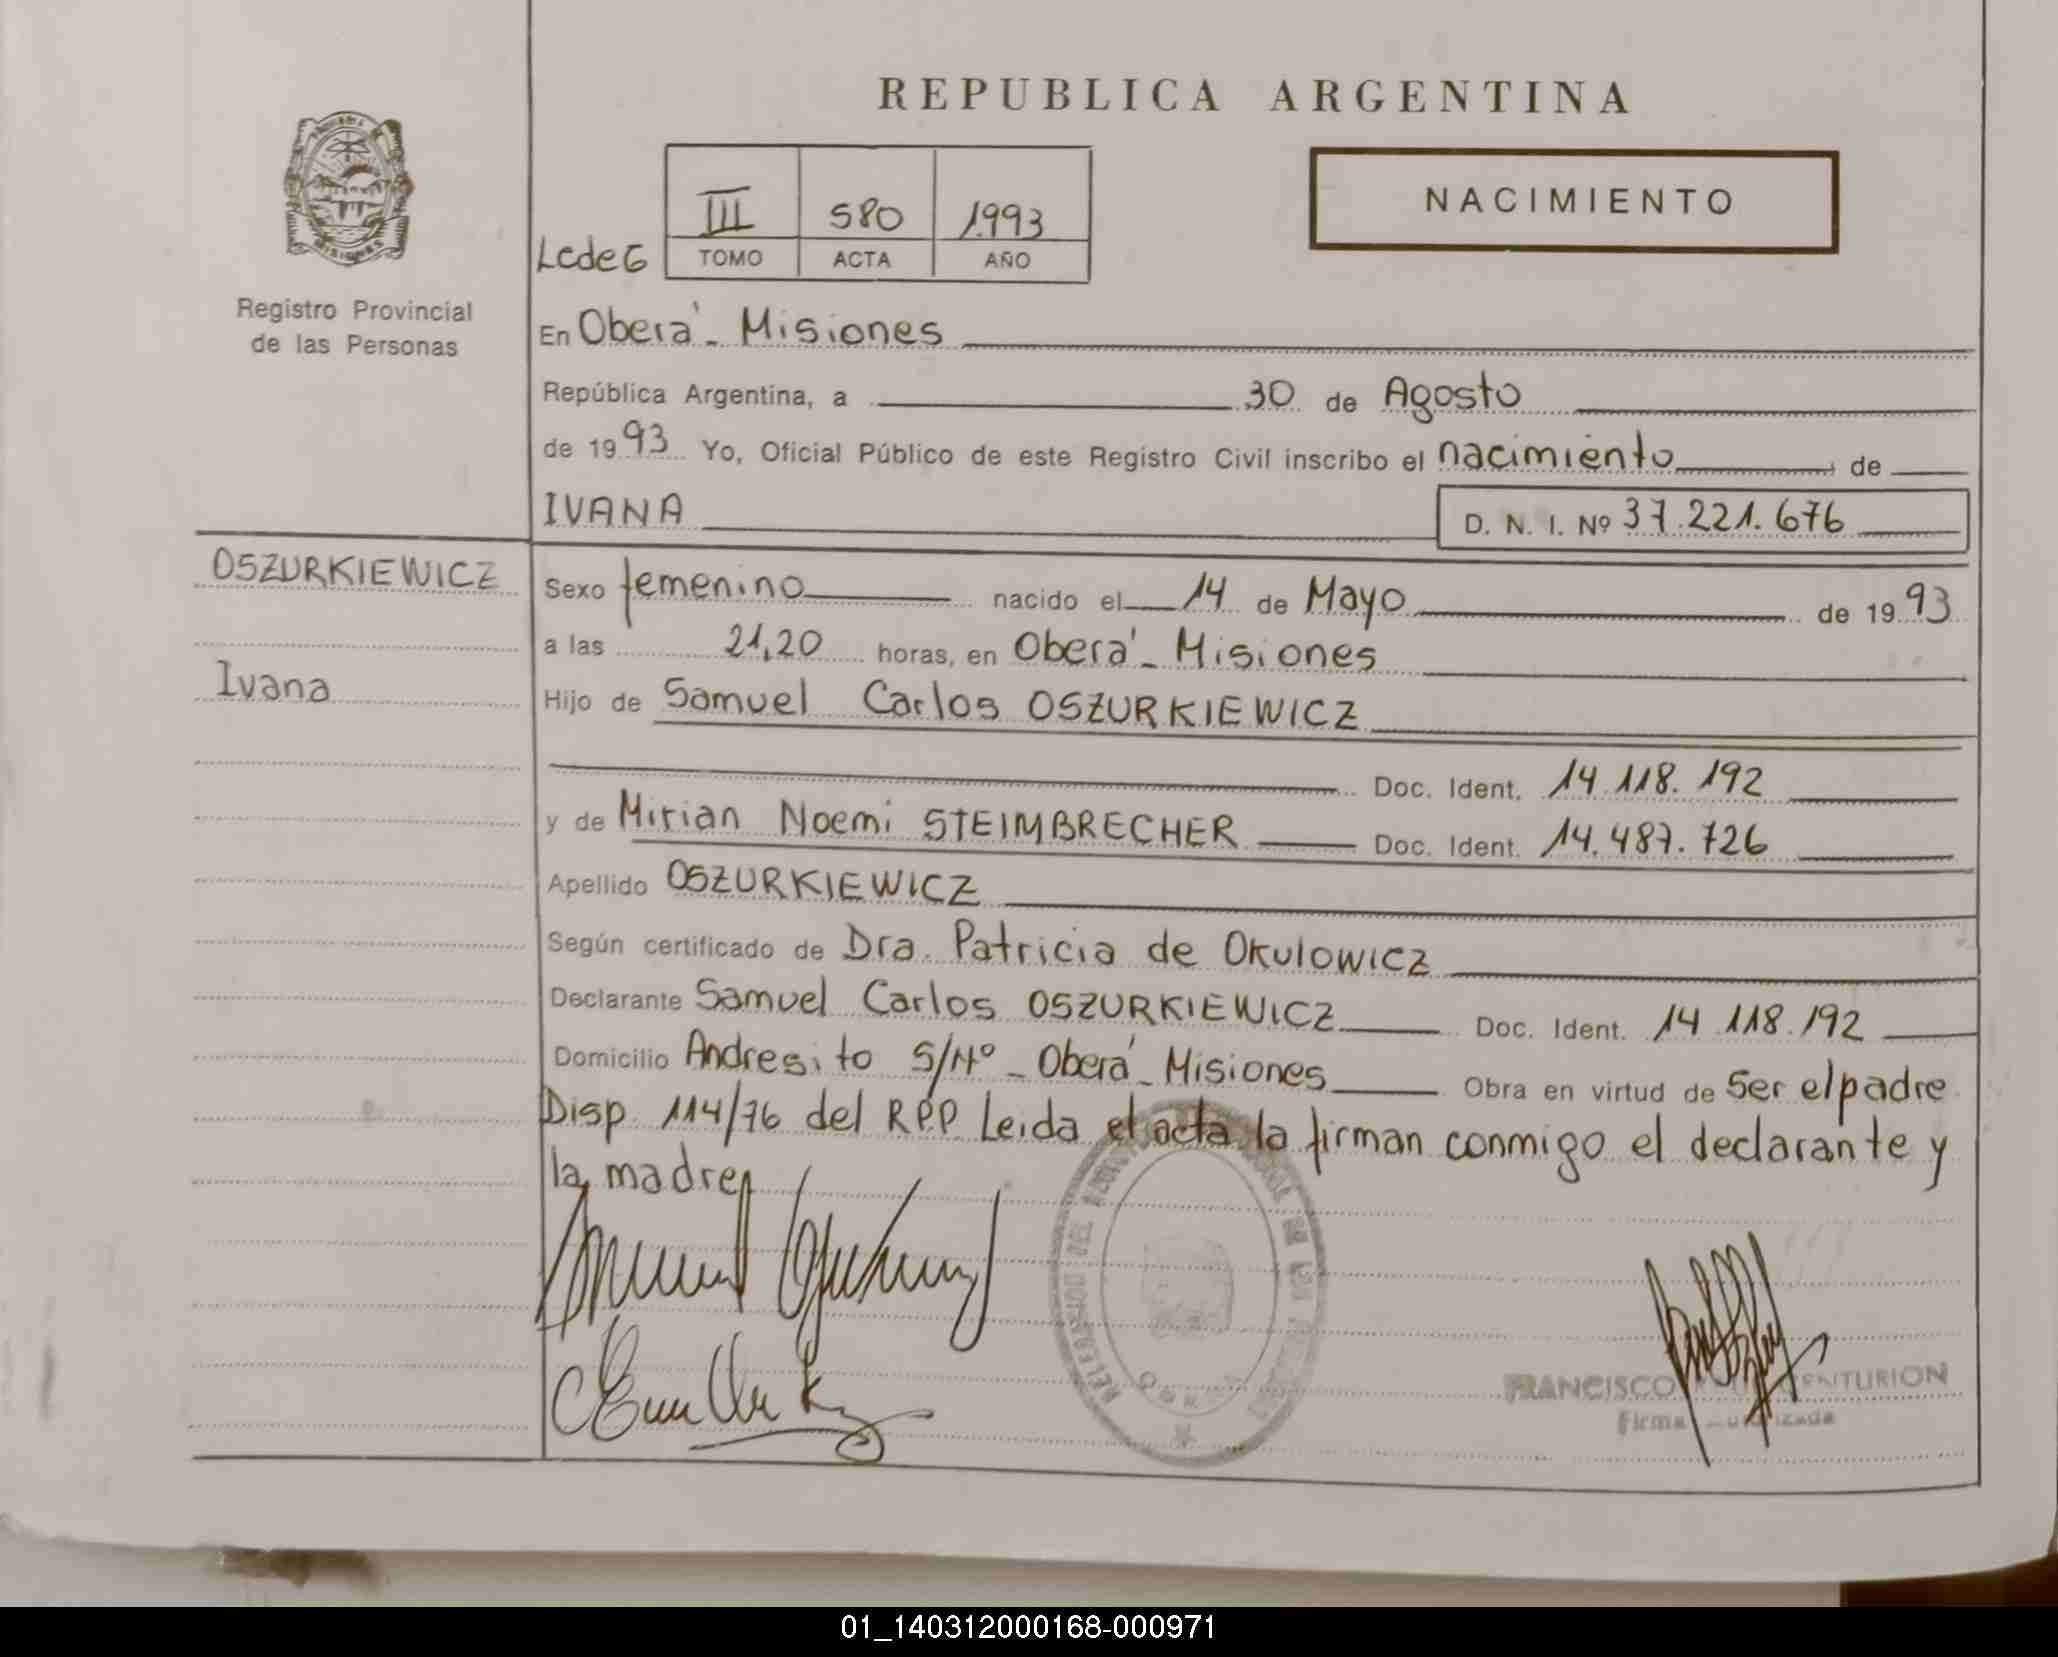 REPUBLICA ARGENTINA
NACIMIENTO
III 580 1993
TOMO ACTA AÑO
Registro Provincial
de las Personas
En Oberá - Misiones
República Argentina, a 30 de Agosto
de 1993 Yo, Oficial Público de este Registro Civil inscribo el nacimiento, de
IVANA D. N. I. Nº 37.221.676
OSZURKIEWICZ
Ivana
Sexo femenino nacido el 14 de Mayo de 1993
a las 21,20 horas, en Oberá - Misiones
Hijo de Samuel Carlos OSZURKIEWICZ
Doc. Ident. 14.118.192
y de Mirian Noemi STEIMBRECHER Doc. Ident. 14.487.726
Apellido OSZURKIEWICZ
Según certificado de Dra. Patricia de OKULOWICZ
Declarante Samuel Carlos OSZURKIEWICZ Doc. Ident. 14.118.192
Domicilio Andresito S/Nº - Oberá - Misiones Obra en virtud de ser el padre
Disp. 114/76 del RPP Leida el acta la firman conmigo el declarante y
la madre
FRANCISCO
Firma
01_140312000168-000971